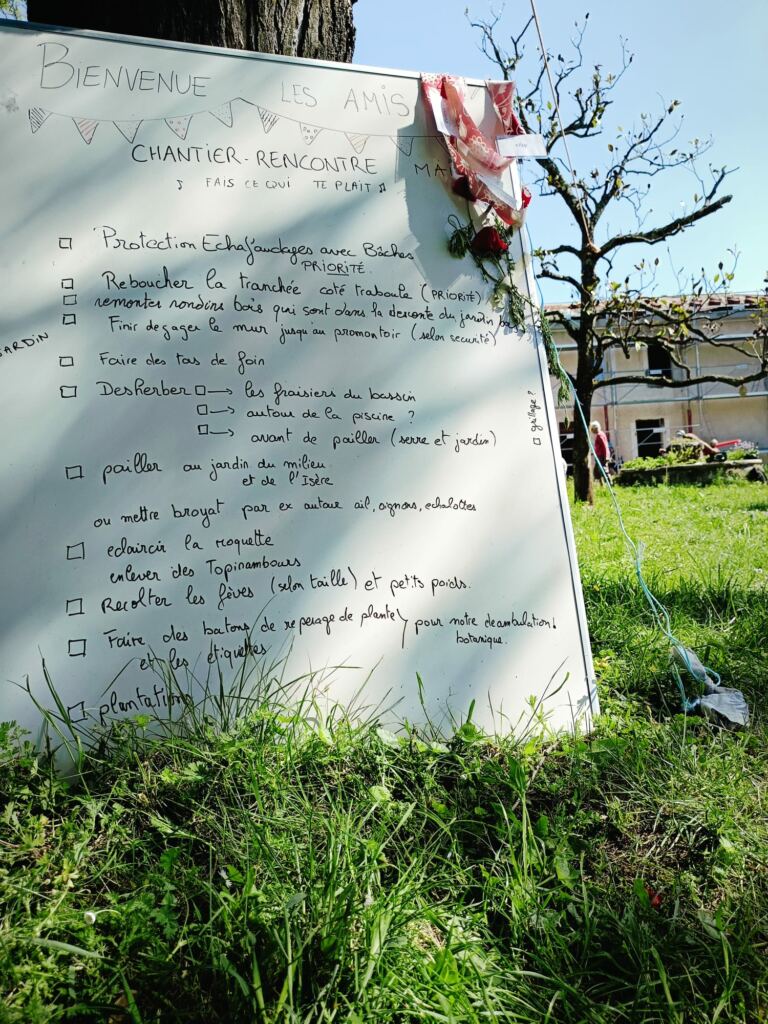 BIENVENUE LES AMIS
CHANTIER-RENCONTRE MA
♪ FAIS CE QUI TE PLAIT ♫
Protection Echafaudages avec Bâches
PRIORITÉ.
Reboucher la tranchée coté traboule (PRIORITÉ)
remonter rondins bois qui sont dans la descente du jardin
Finir degager le mur jusqu'au promontoir (selon securité)
JARDIN
Faire des tas de foin
Desherber → les fraisiers du bassin
→ autour de la piscine ?
→ avant de pailler (serre et jardin)
grillage ?
pailler au jardin du milieu
et de l'Isère
ou mettre broyat par ex autour ail, oignons, echalottes
eclaircir la roquette
enlever des Topinambours
Recolter les fèves (selon taille) et petits poids.
Faire des batons de reperage de plante
et les étiquettes
pour notre deambulation!
botanique.
plantations